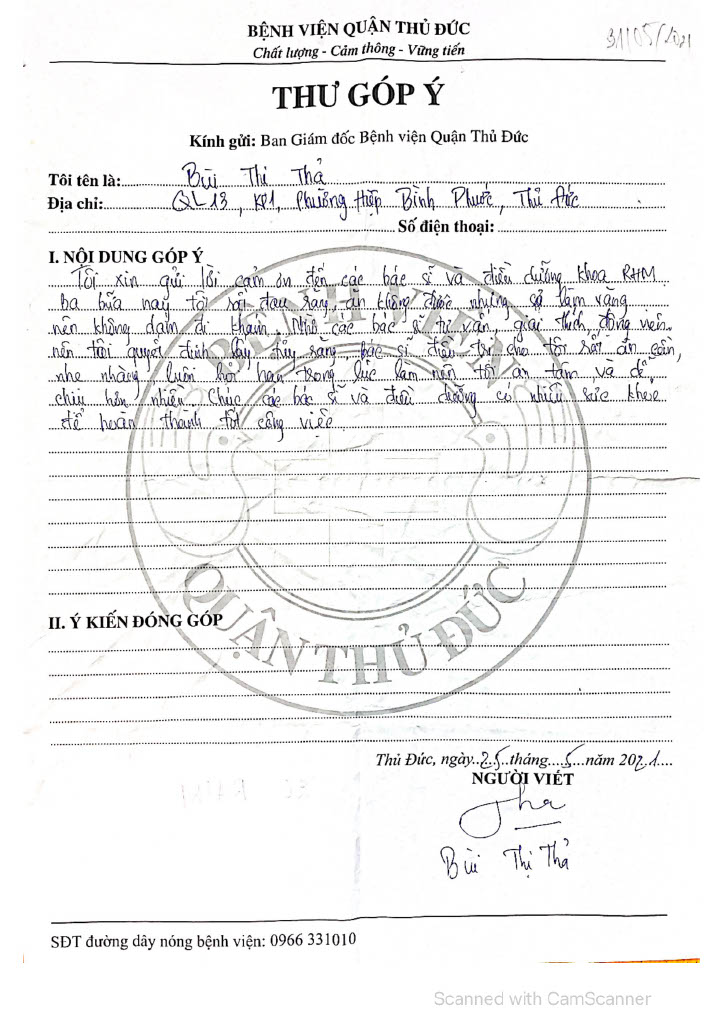 BỆNH VIỆN QUẬN THỦ ĐỨC
Chất lượng - Cảm thông - Vững tiến
31/05/2021
THƯ GÓP Ý
Kính gửi: Ban Giám đốc Bệnh viện Quận Thủ Đức
Tôi tên là: Bùi Thị Thả
Địa chỉ: QL13, KP1, Phường Hiệp Bình Phước, Thủ Đức
Số điện thoại:
I. NỘI DUNG GÓP Ý
Tôi xin gửi lời cảm ơn đến các bác sĩ và điều dưỡng khoa RHM
ba bữa nay tôi rất đau răng, ăn không được nhưng sợ làm răng
nên không dám đi khám. Nhờ các bác sĩ tư vấn, giải thích, động viên
nên tôi quyết định lấy tủy răng. bác sĩ điều trị cho tôi rất ân cần,
nhẹ nhàng luôn hỏi han trong lúc làm nên tôi an tâm và dễ
chịu hẳn nhiên. Chúc các bác sĩ và điều dưỡng có nhiều sức khỏe
để hoàn thành tốt công việc
BỆNH VIỆN
QUẬN THỦ ĐỨC
II. Ý KIẾN ĐÓNG GÓP
Thủ Đức, ngày 25 tháng 5 năm 2021
NGƯỜI VIẾT
Tha
Bùi Thị Thả
SĐT đường dây nóng bệnh viện: 0966 331010
Scanned with CamScanner